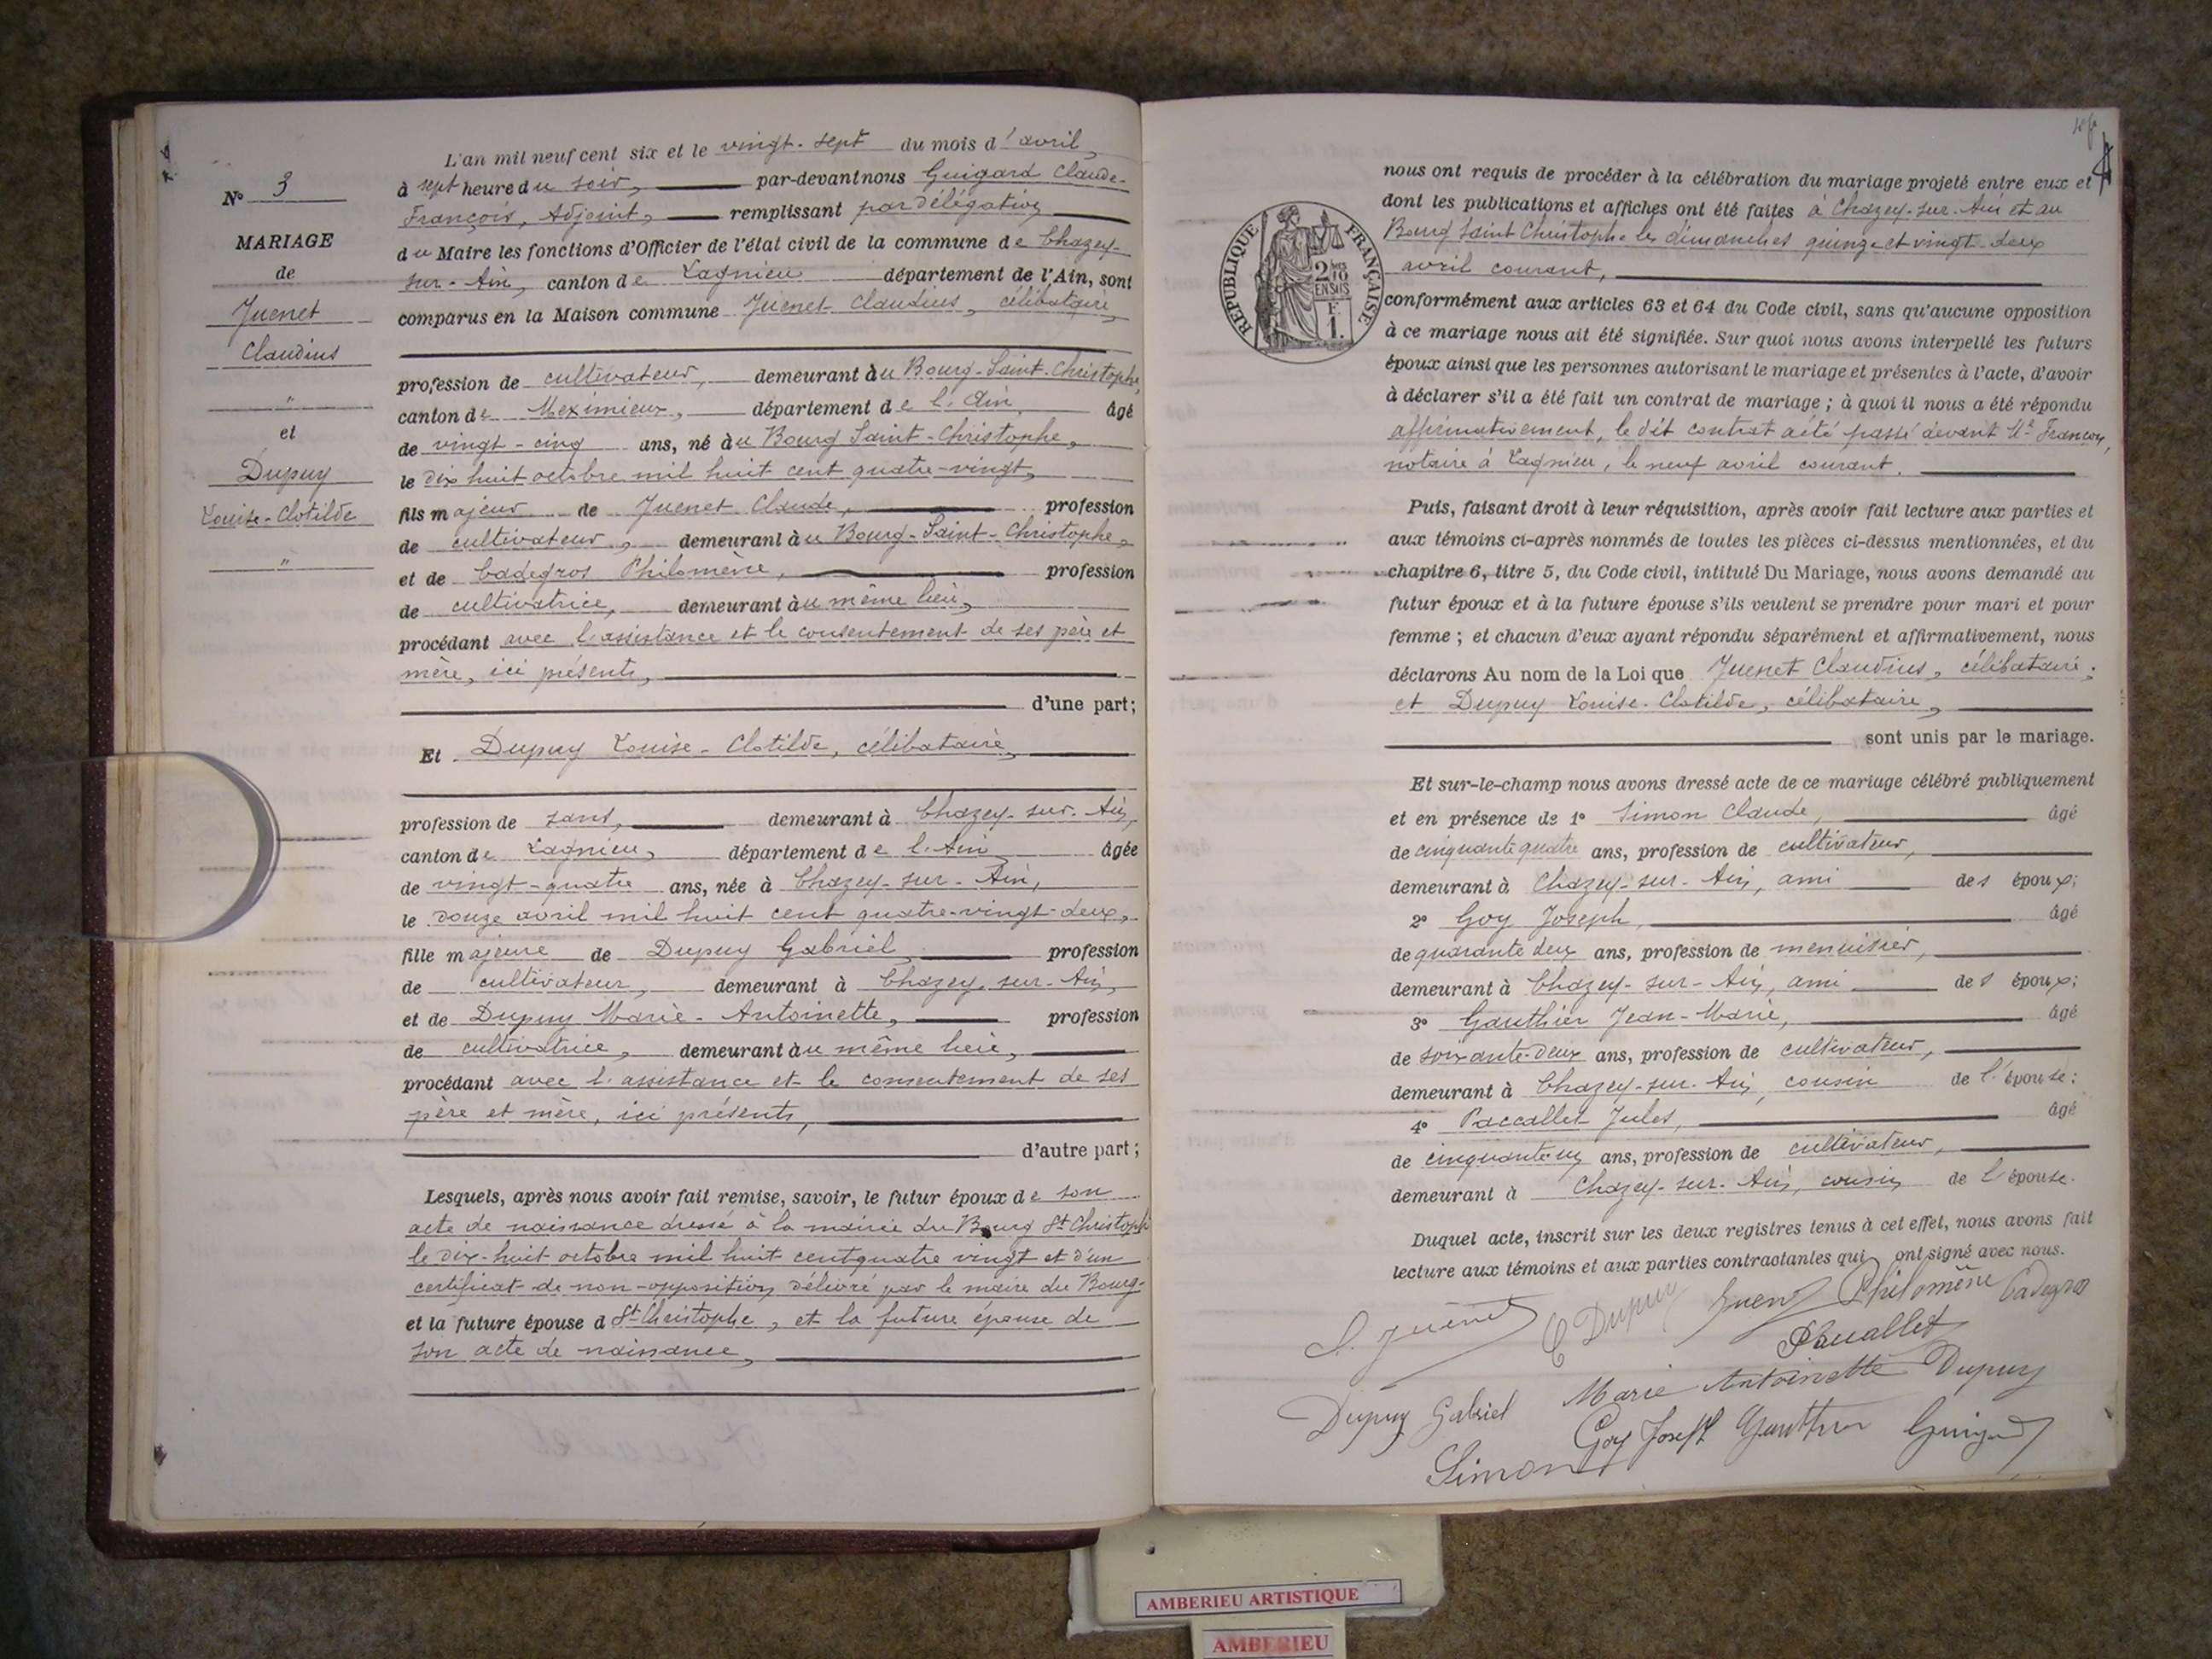 N° 3
MARIAGE
de
Juenet
Claudius
"
et
Dupuy
Louise-Clotilde
"
L'an mil neuf cent six et le vingt-sept du mois d'avril,
à sept heure du soir, par-devant nous Guigard Claude-
François, Adjoint, remplissant par délégation
du Maire les fonctions d'Officier de l'état civil de la commune de Chazey-
sur-Ain, canton de Lagnieu département de l'Ain, sont
comparus en la Maison commune Juenet Claudius, célibataire,
profession de cultivateur, demeurant àu Bourg-Saint-Christophe,
canton de Meximieux, département de l'Ain, âgé
de vingt-cinq ans, né àu Bourg Saint-Christophe,
le dix huit octobre mil huit cent quatre-vingt,
fils majeur de Juenet Claude, profession
de cultivateur, demeurant àu Bourg-Saint-Christophe,
et de Cadegros Philomène, profession
de cultivatrice, demeurant àu même lieu,
procédant avec l'assistance et le consentement de ses père et
mère, ici présents,
d'une part;
Et Dupuy Louise-Clotilde, célibataire,
profession de sans, demeurant à Chazey-sur-Ain,
canton de Lagnieu, département de l'Ain, âgée
de vingt-quatre ans, née à Chazey-sur-Ain,
le douze avril mil huit cent quatre-vingt-deux,
fille majeure de Dupuy Gabriel, profession
de cultivateur, demeurant à Chazey-sur-Ain,
et de Dupuy Marie-Antoinette, profession
de cultivatrice, demeurant àu même lieu,
procédant avec l'assistance et le consentement de ses
père et mère, ici présents,
d'autre part;
Lesquels, après nous avoir fait remise, savoir, le futur époux de son
acte de naissance dressé à la mairie du Bourg St Christophe
le dix-huit octobre mil huit cent quatre vingt et d'un
certificat de non-opposition délivré par le maire du Bourg-
et la future épouse d St Christophe, et la future épouse de
son acte de naissance,
nous ont requis de procéder à la célébration du mariage projeté entre eux et
dont les publications et affiches ont été faites à Chazey-sur-Ain et au
Bourg Saint Christophe les dimanches quinze et vingt-deux
avril courant,
RÉPUBLIQUE FRANÇAISE
2/10 EN SUS
F
1.
conformément aux articles 63 et 64 du Code civil, sans qu'aucune opposition
à ce mariage nous ait été signifiée. Sur quoi nous avons interpellé les futurs
époux ainsi que les personnes autorisant le mariage et présentes à l'acte, d'avoir
à déclarer s'il a été fait un contrat de mariage; à quoi il nous a été répondu
affirmativement, le dit contrat a été passé devant Me Francon,
notaire à Lagnieu, le neuf avril courant.
Puis, faisant droit à leur réquisition, après avoir fait lecture aux parties et
aux témoins ci-après nommés de toutes les pièces ci-dessus mentionnées, et du
chapitre 6, titre 5, du Code civil, intitulé Du Mariage, nous avons demandé au
futur époux et à la future épouse s'ils veulent se prendre pour mari et pour
femme; et chacun d'eux ayant répondu séparément et affirmativement, nous
déclarons Au nom de la Loi que Juenet Claudius, célibataire,
et Dupuy Louise-Clotilde, célibataire,
sont unis par le mariage.
Et sur-le-champ nous avons dressé acte de ce mariage célébré publiquement
et en présence de 1° Simon Claude, âgé
de cinquante quatre ans, profession de cultivateur,
demeurant à Chazey-sur-Ain, ami des époux;
2° Goy Joseph, âgé
de quarante deux ans, profession de menuisier,
demeurant à Chazey-sur-Ain, ami des époux;
3° Gauthier Jean-Marie, âgé
de soixante-deux ans, profession de cultivateur,
demeurant à Chazey-sur-Ain, cousin de l'épouse;
4° Paccallet Jules, âgé
de cinquante un ans, profession de cultivateur,
demeurant à Chazey-sur-Ain, cousin de l'épouse.
Duquel acte, inscrit sur les deux registres tenus à cet effet, nous avons fait
lecture aux témoins et aux parties contractantes qui ont signé avec nous.
C. Juenet C Dupuy Juenet Philomène Cadegros
Paccallet
Dupuy Gabriel Marie Antoinette Dupuy
Simon Goy Joseph Gauthier Guigard
AMBERIEU ARTISTIQUE
AMBERIEU